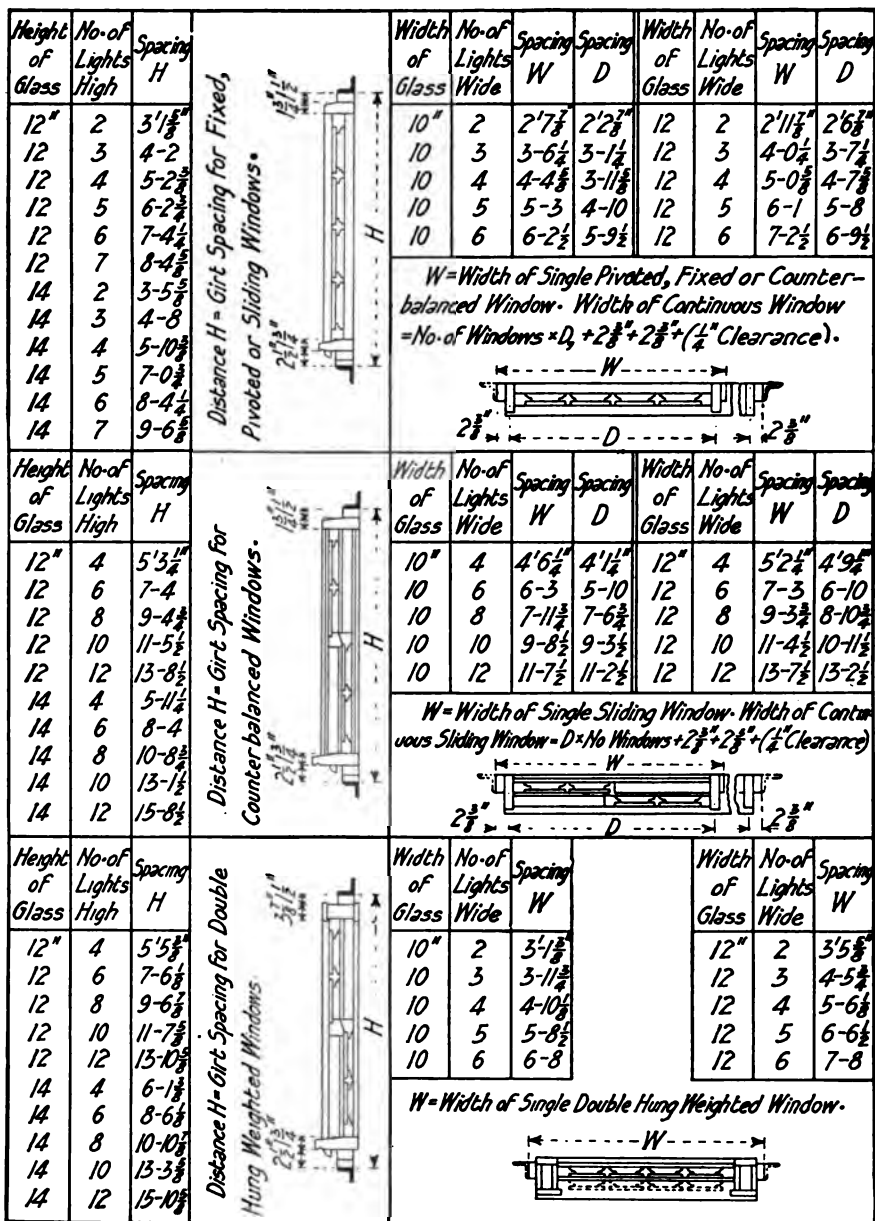 Height of Glass | No. of Lights High | Spacing H
12" | 2 | 3'1 5/8"
12 | 3 | 4-2
12 | 4 | 5-2 3/4
12 | 5 | 6-2 3/4
12 | 6 | 7-4 1/4
12 | 7 | 8-4 5/8
14 | 2 | 3-5 5/8
14 | 3 | 4-8
14 | 4 | 5-10 3/8
14 | 5 | 7-0 3/4
14 | 6 | 8-4 1/4
14 | 7 | 9-6 5/8
Distance H = Girt Spacing for Fixed,
Pivoted or Sliding Windows.
H
Width of Glass | No. of Lights Wide | Spacing W | Spacing D | Width of Glass | No. of Lights Wide | Spacing W | Spacing D
10" | 2 | 2'7 7/8" | 2'2 7/8" | 12 | 2 | 2'11 7/8" | 2'6 7/8"
10 | 3 | 3-6 1/4 | 3-1 1/4 | 12 | 3 | 4-0 1/4 | 3-7 1/4
10 | 4 | 4-4 5/8 | 3-11 5/8 | 12 | 4 | 5-0 5/8 | 4-7 5/8
10 | 5 | 5-3 | 4-10 | 12 | 5 | 6-1 | 5-8
10 | 6 | 6-2 1/2 | 5-9 1/2 | 12 | 6 | 7-2 1/2 | 6-9 1/2
W = Width of Single Pivoted, Fixed or Counter-
balanced Window. Width of Continuous Window
= No. of Windows × D, + 2 3/8" + 2 3/8" + (1/4" Clearance).
W
2 3/8" D 2 3/8"
Height of Glass | No. of Lights High | Spacing H
12" | 4 | 5'3 1/4"
12 | 6 | 7-4
12 | 8 | 9-4 3/4
12 | 10 | 11-5 1/2
12 | 12 | 13-8 1/2
14 | 4 | 5-11 1/4
14 | 6 | 8-4
14 | 8 | 10-8 3/4
14 | 10 | 13-1 1/2
14 | 12 | 15-8 1/2
Distance H = Girt Spacing for
Counterbalanced Windows.
H
Width of Glass | No. of Lights Wide | Spacing W | Spacing D | Width of Glass | No. of Lights Wide | Spacing W | Spacing D
10" | 4 | 4'6 1/4" | 4'1 1/4" | 12" | 4 | 5'2 1/4" | 4'9 1/4"
10 | 6 | 6-3 | 5-10 | 12 | 6 | 7-3 | 6-10
10 | 8 | 7-11 3/4 | 7-6 3/4 | 12 | 8 | 9-3 3/4 | 8-10 3/4
10 | 10 | 9-8 1/2 | 9-3 1/2 | 12 | 10 | 11-4 1/2 | 10-11 1/2
10 | 12 | 11-7 1/2 | 11-2 1/2 | 12 | 12 | 13-7 1/2 | 13-2 1/2
W = Width of Single Sliding Window. Width of Contin-
uous Sliding Window = D × No Windows + 2 3/8" + 2 3/8" + (1/4" Clearance)
W
2 3/8" D 2 3/8"
Height of Glass | No. of Lights High | Spacing H
12" | 4 | 5'5 3/8"
12 | 6 | 7-6 1/8
12 | 8 | 9-6 7/8
12 | 10 | 11-7 5/8
12 | 12 | 13-10 5/8
14 | 4 | 6-1 3/8
14 | 6 | 8-6 1/8
14 | 8 | 10-10 7/8
14 | 10 | 13-3 5/8
14 | 12 | 15-10 5/8
Distance H = Girt Spacing for Double
Hung Weighted Windows.
H
Width of Glass | No. of Lights Wide | Spacing W | Width of Glass | No. of Lights Wide | Spacing W
10" | 2 | 3'-1 3/8" | 12" | 2 | 3'5 3/8"
10 | 3 | 3-11 3/4 | 12 | 3 | 4-5 3/4
10 | 4 | 4-10 1/8 | 12 | 4 | 5-6 1/8
10 | 5 | 5-8 1/2 | 12 | 5 | 6-6 1/2
10 | 6 | 6-8 | 12 | 6 | 7-8
W = Width of Single Double Hung Weighted Window.
W